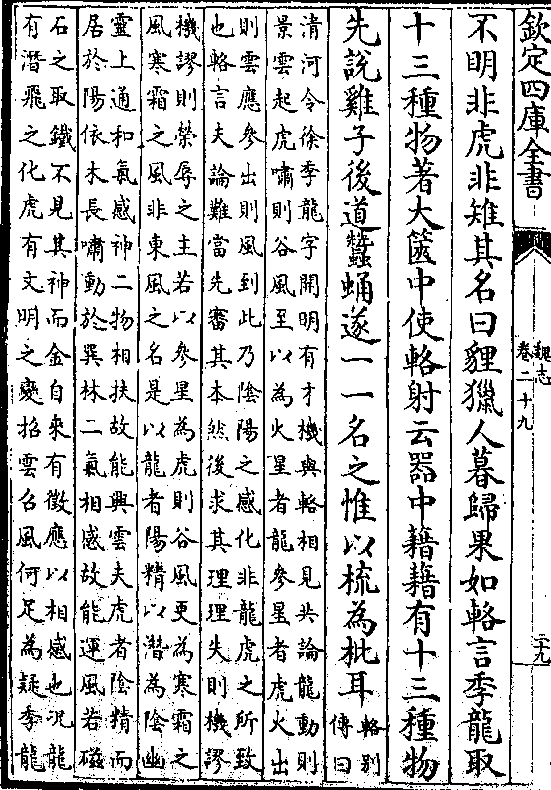 欽定四庫全書
魏志
卷二十九
不明非虎非雉其名曰貍獵人暮歸果如輅言季龍取
十三種物著大篋中使輅射云器中藉藉有十三種物
先說雞子後道蠶蛹遂一一名之惟以梳為枇耳
輅別
傳曰
清河令徐季龍字開明有才機與輅相見共論龍動則
景雲起虎嘯則谷風至以為火星者龍參星者虎火出
則雲應參出則風到此乃陰陽之感化非龍虎之所致
也輅言夫論難當先審其本然後求其理理失則機謬
機謬則榮辱之主若以參星為虎則谷風更為寒霜之
風寒霜之風非東風之名是以龍者陽精以潛為陰幽
靈上通和氣感神二物相扶故能興雲夫虎者陰精而
居於陽依木長嘯動於巽林二氣相感故能運風若磁
石之取鐵不見其神而金自來有徵應以相感也況龍
有潛飛之化虎有文明之變招雲召風何足為疑季龍